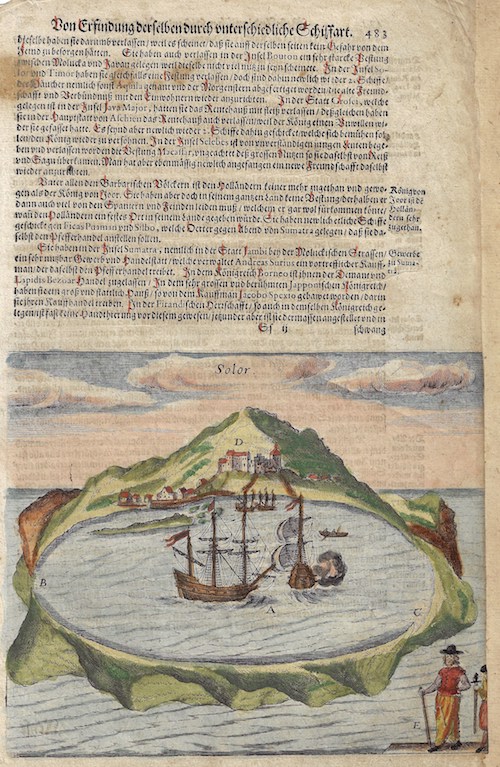 Von Erfindung derselben durch vnterschiedliche Schiffart. 483
dieselbe haben sie darumb verlassen / weil es scheinet / daß sie auff derselben seiten kein Gefahr von dem
Feind zu besorgen hätten. Sie haben auch verlassen in der Insel Bouton ein sehr starcke Vestung
zwischen Molucka vnd Javan gelegen / weil dieselbe nicht viel nutz zu seyn scheinete. In der Insel So-
lor vnd Timor haben sie gleichfalls eine Vestung verlassen / doch sind dahin newlich wider 2. Schiffe
der Wächter nemlich sampt
vnd der Morgenstern abgefertiget worden / die alte Freund-
schafft vnd Verbündnuß mit den Einwohnern wieder anzurichten. In der Statt Grosei, welche
gelegen ist in der Insel Java Major, haben sie das Renthauß mit fleiß verlassen / deßgleichen haben
sie in der Hauptstatt von Aschien das Renthauß auch verlassen / weil der König einen Vnwillen wi-
der sie gefasset hatte. Es seynd aber newlich wider 2. Schiffe dahin geschicket / welche sich bemühen sol-
len den König wieder zu versöhnen. In der Insel Selebes ist von vnverständigen jungen Leuten bege-
ben vnd verlassen worden die Vestung Macassar, vngeachtet deß grossen Nutzes so sie daselbst von Reiß
vnd Sagu überkamen. Man hat aber ebenmässig newlich angefangen ein newe Freundschafft daselbst
wieder anzurichten.
Vnter allen den Barbarischen Völckern ist den Holländern keiner mehr zugethan vnd gewo-
gen als der König von Joor. Sie haben aber doch in seinem gantzen Land keine Vestung / derhalben er
dann auch viel von den Spaniern vnd Feinden leiden muß / welchem er gar wol fürkommen könte /
wann den Holländern ein festes Ort in seinem Lande gegeben würde. Sie haben newlich etliche Schiffe
geschicket gen
Puzman vnd Silbo, welche Oerter gegen Abend von Sumatra gelegen / daß sie da-
selbst den Pfefferhandel anstellen sollen.
König von
Joor ist de
Hollän-
dern sehr
zugethan.
Sie haben in der Insel Sumatra, nemlich in der Statt Jambi bey der Moluckischen Strassen /
ein sehr nutzbar Gewerb vnd Handelstatt / welche verwaltet Andreas Surius ein vortrefflicher Kauff-
man / der daselbst den Pfefferhandel treibet. In dem Königreich Borneo ist ihnen der Demant vnd
Lapidis Bezoar Handel zugelassen / In dem sehr grossen vnd berühmten Japponischen Königreich /
haben sie ein groß vnd stattlich Hauß / so von dem Kauffman Jacobo Spexio gebawet worden / darin
sie jhren Kauffhandel treiben. In der Firandischen Herrschafft / so auch in demselben Königreich ge-
legen / ist fast keine Handthierung vor diesem gewesen / jetzunder aber ist sie dermassen angestellet vnd im
Gewerbe
zu Suma-
Sſ ij
schwang
Solor.
D
B
A
C
E